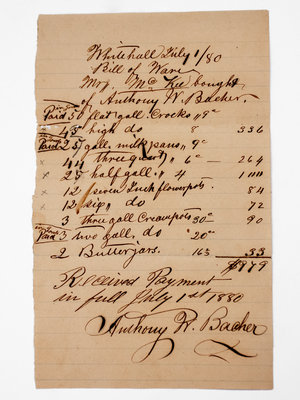 Whitehall July 1/80
Bill of Ware
Mrj. McKee bought
of Anthony W. Bacher.
Paid 50 flat gall. Crocks " 9c
× 45 high do 8 336
Paid 25 gall, milkpans " 9c
× 44 three quart " 6c – 264
× 25 half gall. " 4 100
× 12 seven Inch flowerpots. 84
× 12 six " do 72
3 three gall Creampots 30c 90
Paid 3 two gall, do "20c
2 Butterjars. 16½ 33
$979
Received Payment
in full July 1st 1880
Anthony W. Bacher